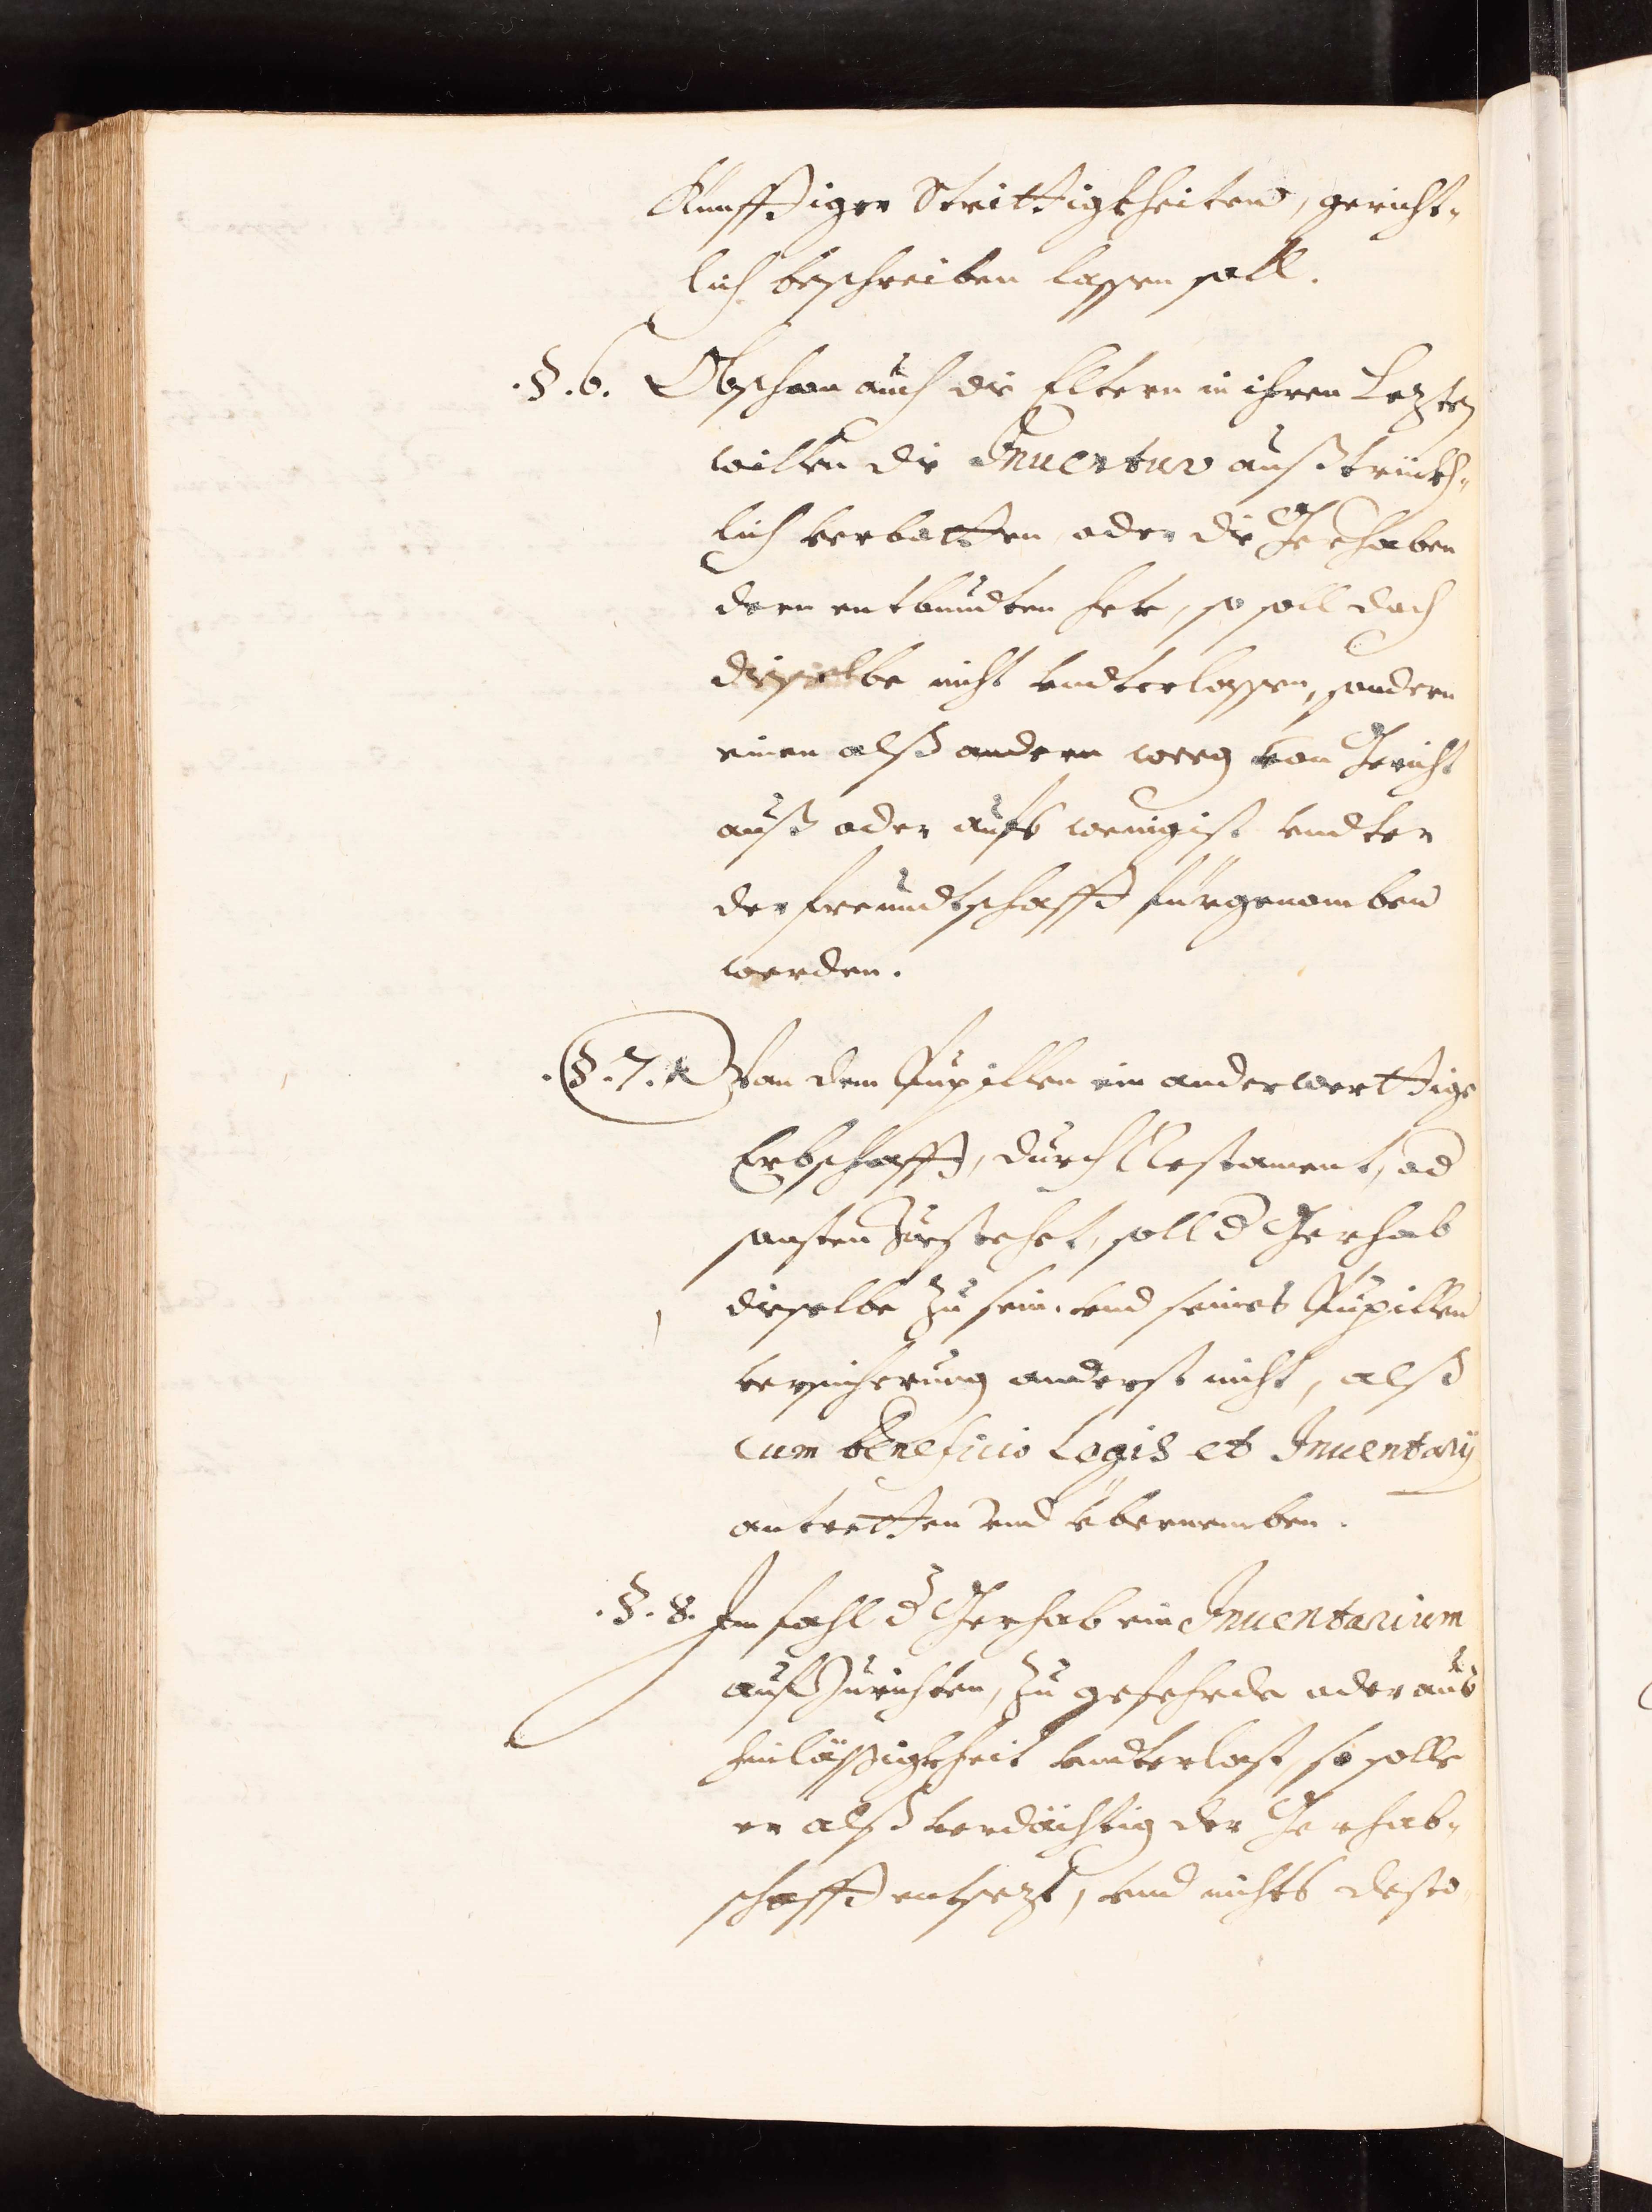 Künfftiger Strittigkheiten, gericht-
lich beschreiben lassen soll.
.§.6. Obschon auch die Eltern in ihren Lezten
willen die Inuentur außtrückh-
lich verbotten, oder die Gerhaben
deren entbundten hete, so soll doch
dieselbe nicht vndterlassen, sondern
einen alß andern weeg von Gericht
auß oder aufs wenigist vndter
der freundtschafft fürgenomben
werden.
.§.7. Wan dem Pupillen ein anderwerttige
Erbschafft, durch Testament, od
sonsten Zuestehet, soll d Gerhab
dieselbe zu sein. vnd seines Pupillen
versicherung anderst nicht, alß
cum beneficio Legis et Inuentarÿ
antretten vnd übernemben.
.§.8. Im fahl d Gerhab ein Inuentarium
aufZurichten, zu gefehrde oder aus
hinläßigkheit vndterlast, so solle
er alß verdächtig der Gerhab-
schafft entsezt, vnd nichts desto